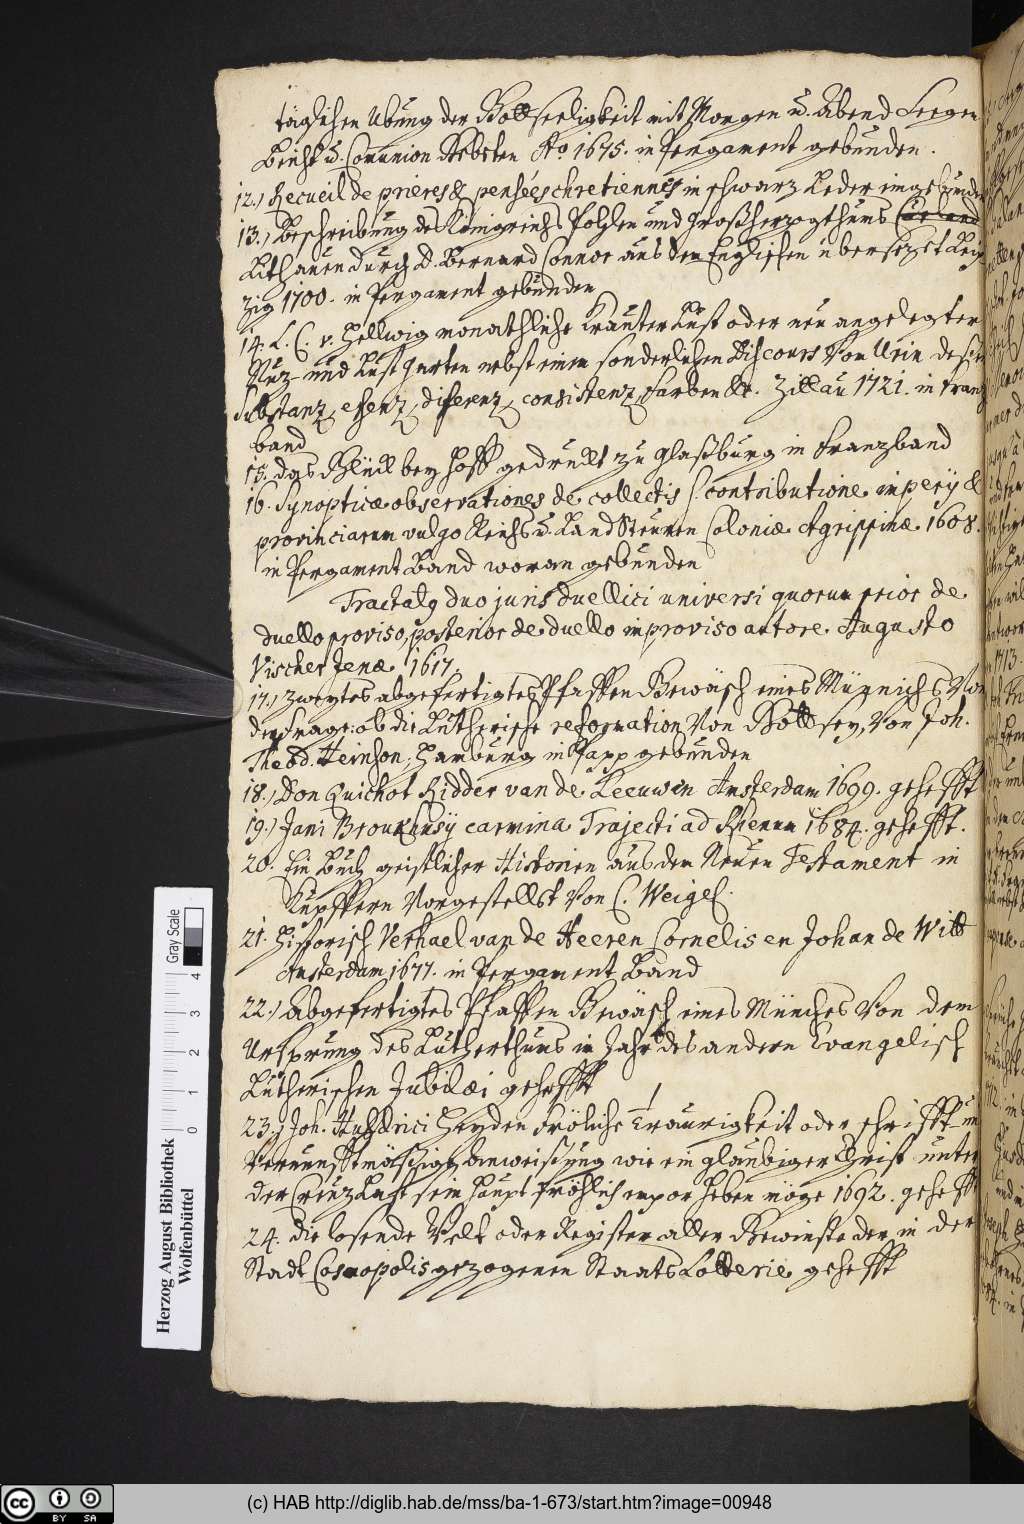 täglichen Ubung der Gottseeligkeit mit Morgen u. Abend Seegen
Beicht u. Communion Gebeten Ao 1675. in Pergament gebunden.
12.) Recueil de prieres & pensées chretiennes in schwarz Leder eingebunden
13.) Beschreibung des Königreichs Pohlen und Großherzogthums Curland
Lithauen durch D. Bernard Connor aus dem Englischen übersezet Leip
zig 1700. in Pergament gebunden
14. L. C. v. Hellwig monathliche Kräuter Lust oder neu angelegter
Nuz- und Lust Garten nebst einem sonderlichen Discours Von Urin deßen
Substanz, essenz, diferenz, consistenz, farben &c. Zillau 1721. in franz
band
15. das Glück bey Hoff gedruckt zu Glaßburg in franzband
16. Synopticæ observationes de collectis s. contributione imperij &
provinciarum vulgo Reichs u. Land Steuren Coloniæ Agrippinæ 1608.
in Pergament Band woran gebunden
Tractatg duo juris duellici universi quorum prior de
duello proviso, posterior de duello improviso autore Augusto
Vischer Jenæ 1617.
17.) zweytes abgefertigtes Pfaffen Gewäsch eines Münichs Von
der frage: ob die Lutherische reformation Von Gott sey, Von Joh.
Theod. Heinson, Hamburg in Papp gebunden
18.) Don Quichot Ridder van de Leeuwen Amsterdam 1699. gehefft
19.) Jani Broukhusij carmina Trajecti ad Rhenum 1684. gehefft.
20. Ein Buch geistlicher Historien aus dem Neuen Testament in
Kupffern Vorgestellet Von C. Weigel.
21. Historisch Verhael van de Heeren Cornelis en Johan de Witt
Amsterdam 1677. in Pergament Band
22.) Abgefertigtes Pfaffen Gewäsch eines Münches Von dem
Ursprung des Lutherthums in Jahr des andern Evangelisch
Lutherischen Jubilæi gehefft
23.) Joh. Heyden fröliche Traurigkeit oder schrifft- und
Vernunfftmäßige Anweisung wie ein glaubiger Christ unter
der Creuz Last sein Haupt fröhlich empor heben möge 1692. gehefft
24. die losende Welt oder Register aller Gewinste der in der
Stadt Cosmopolis gezogenen Staats Lotterie gehefft
Herzog August Bibliothek
Wolfenbüttel
0 1 2 3 4
Gray Scale
cc BY SA
(c) HAB http://diglib.hab.de/mss/ba-1-673/start.htm?image=00948